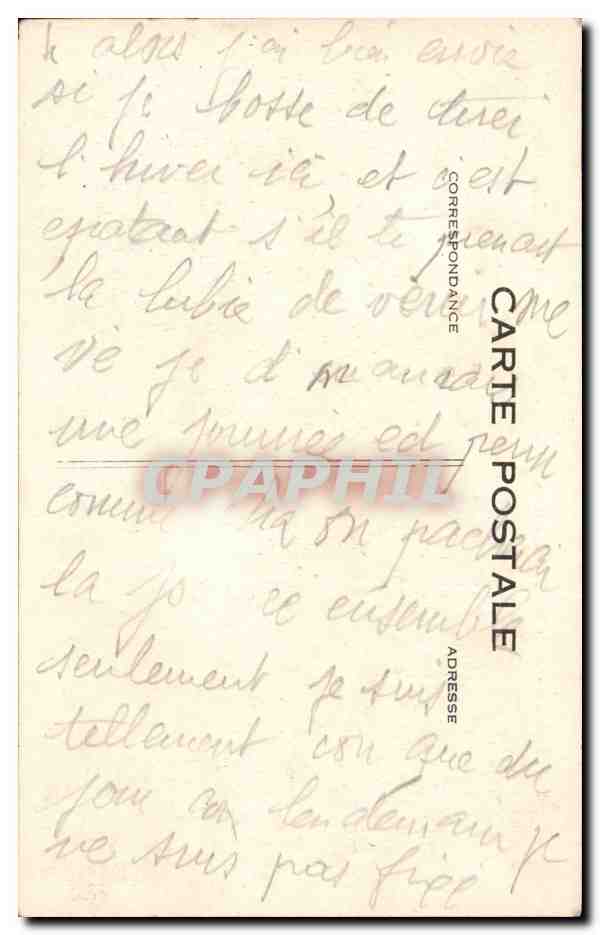 alors j'ai bien envie
si je bosse de tirer
l'hiver ici et c'est
epatant s'il te prenait
la lubie de venir me
je d'
une journée
comme ça on
la ensemble
seulement je suis
tellement con que du
jour au lendemain je
ne suis pas fixé
CORRESPONDANCE
CARTE POSTALE
ADRESSE
CPAPHIL